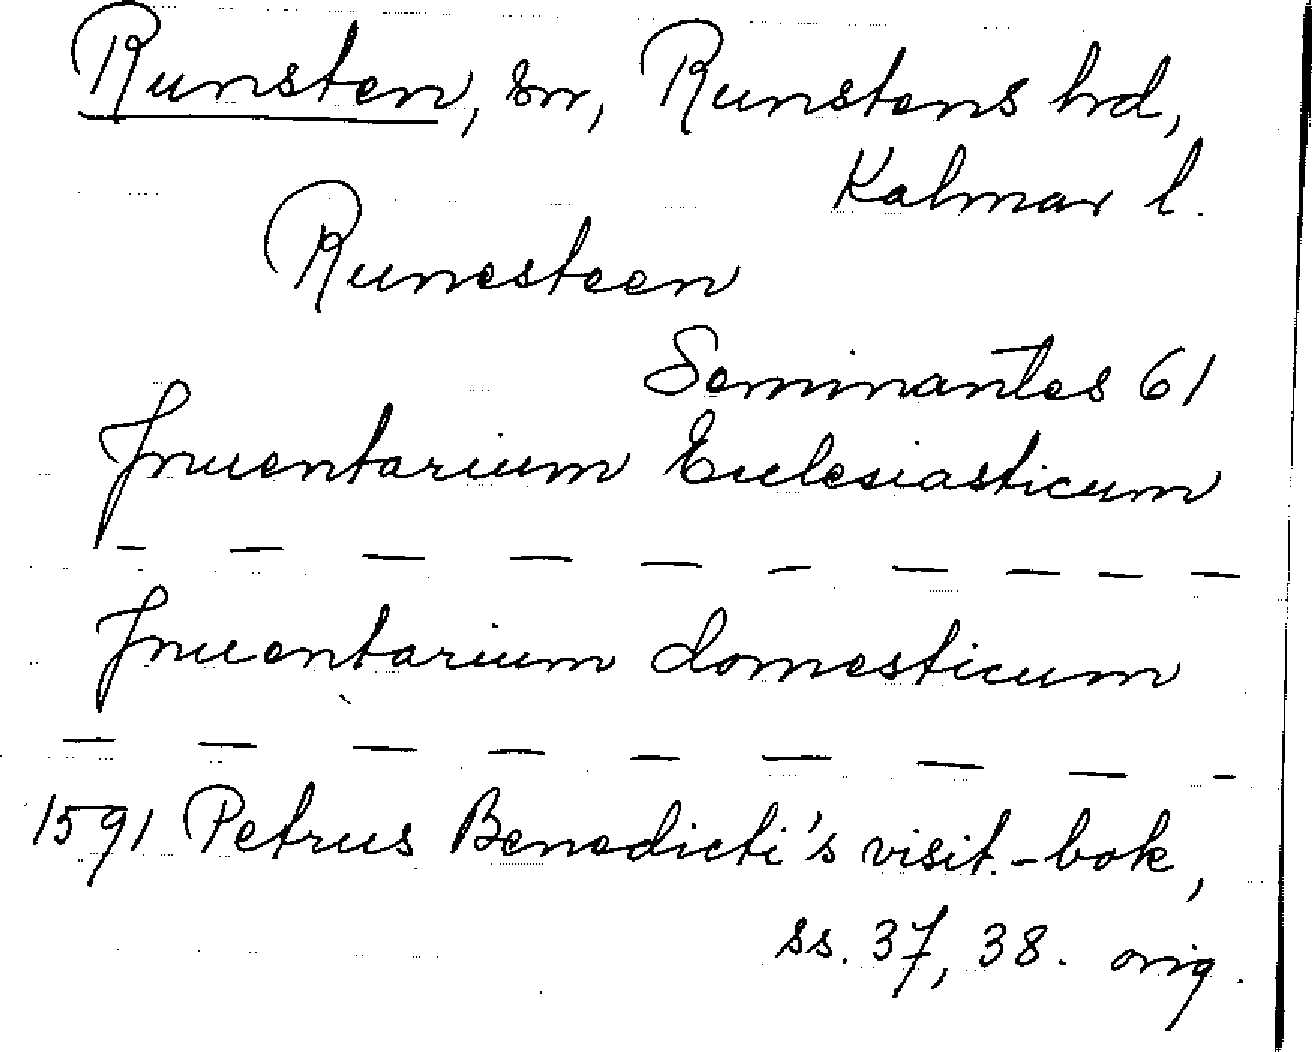 Runsten, sn, Runstens hrd,
Kalmar l.
Runesteen
Seminantes 61
Inuentarium Ecclesiasticum
— — — — — — — — — —
Inuentarium domesticum
— — — — — — — — —
1591 Petrus Benedicti's visit.-bok,
ss. 37, 38. orig.